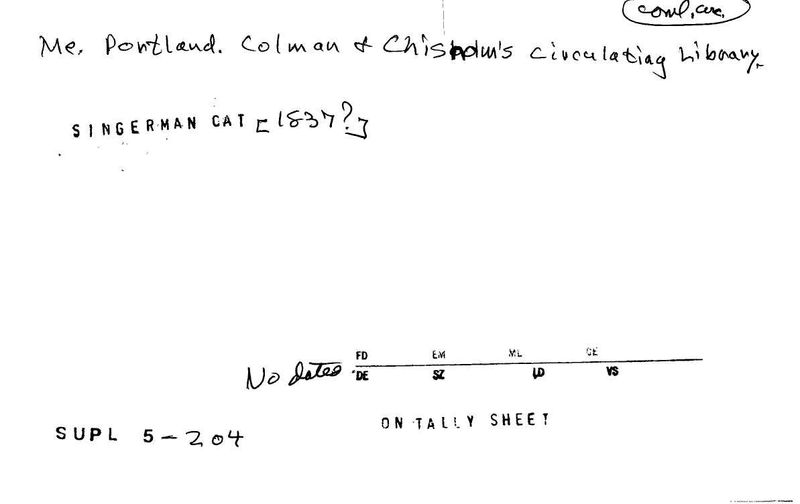 coml, circ.
Me. Portland. Colman & Chisholm's Circulating Library.
SINGERMAN CAT [1837?]
FD EM ML CE
No dates DE SZ LD VS
ON TALLY SHEET
SUPL 5-204